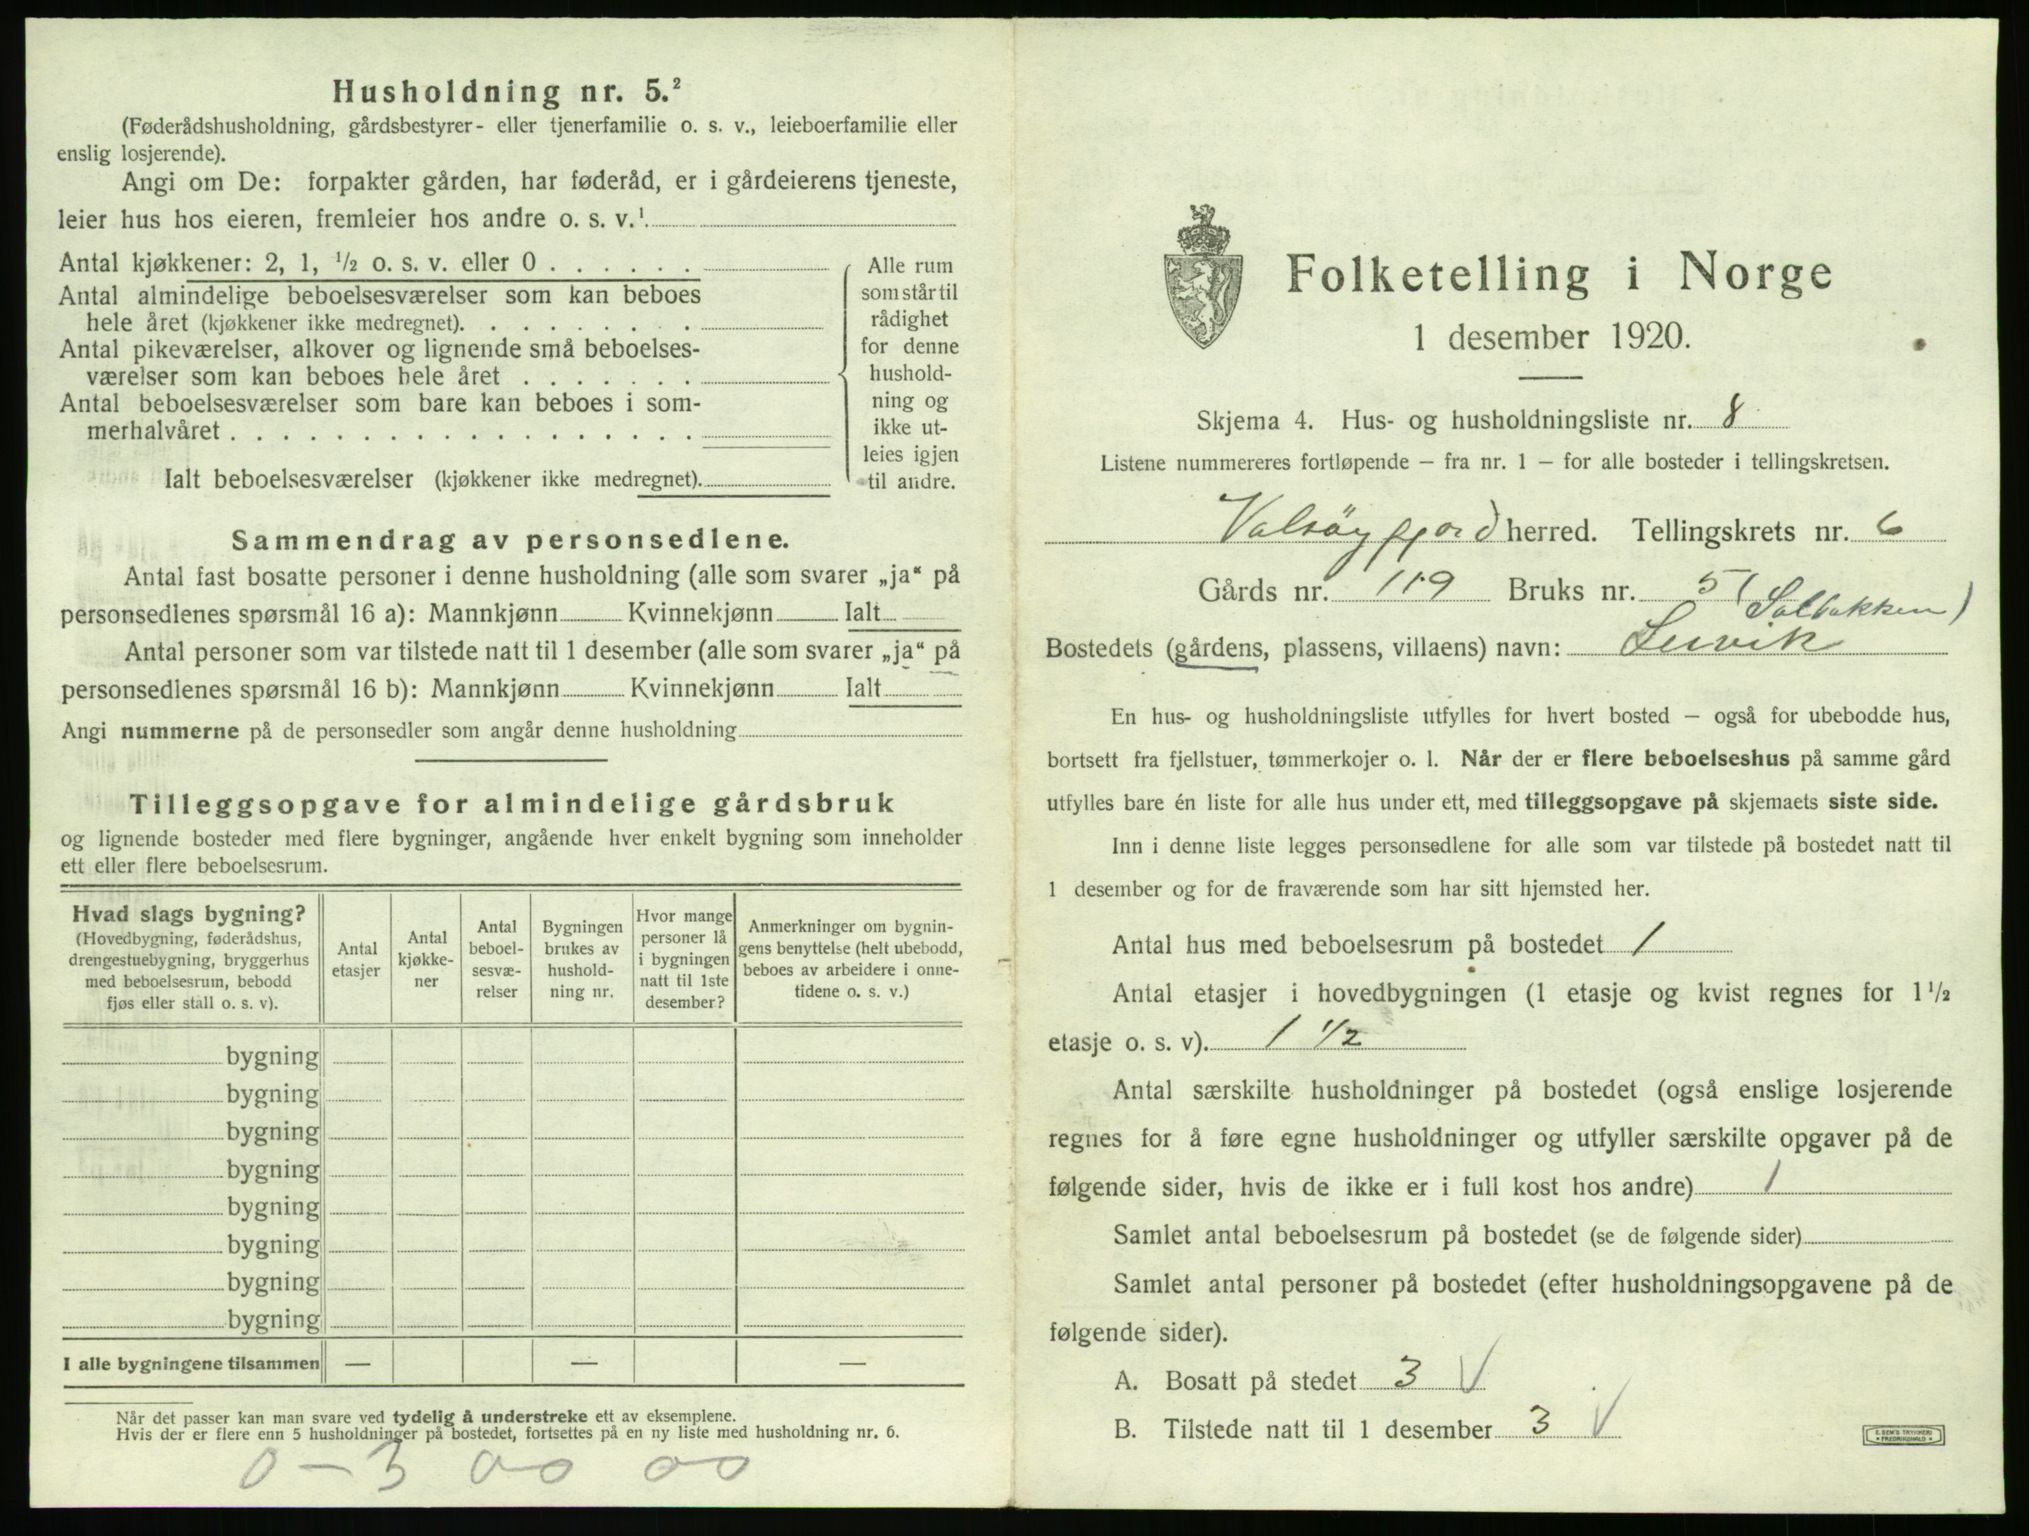 Husholdning nr. 5.²
(Føderådshusholdning, gårdsbestyrer- eller tjenerfamilie o. s. v., leieboerfamilie eller
enslig losjerende).
Angi om De: forpakter gården, har føderåd, er i gårdeierens tjeneste,
leier hus hos eieren, fremleier hos andre o. s. v.¹
Antal kjøkkener: 2, 1, ½ o. s. v. eller 0
Antal almindelige beboelsesværelser som kan beboes
hele året (kjøkkener ikke medregnet).
Antal pikeværelser, alkover og lignende små beboelses-
værelser som kan beboes hele året
Antal beboelsesværelser som bare kan beboes i som-
merhalvåret
Ialt beboelsesværelser (kjøkkener ikke medregnet).
Alle rum
som står til
rådighet
for denne
hushold-
ning og
ikke ut-
leies igjen
til andre.
Sammendrag av personsedlene.
Antal fast bosatte personer i denne husholdning (alle som svarer „ja“ på
personsedlenes spørsmål 16 a): Mannkjønn Kvinnekjønn Ialt
Antal personer som var tilstede natt til 1 desember (alle som svarer „ja“ på
personsedlenes spørsmål 16 b): Mannkjønn Kvinnekjønn Ialt
Angi nummerne på de personsedler som angår denne husholdning
Tilleggsopgave for almindelige gårdsbruk
og lignende bosteder med flere bygninger, angående hver enkelt bygning som inneholder
ett eller flere beboelsesrum.
Hvad slags bygning?
(Hovedbygning, føderådshus,
drengestuebygning, bryggerhus
med beboelsesrum, bebodd
fjøs eller stall o. s. v).
Antal
etasjer
Antal
kjøkke-
ner
Antal
beboel-
sesvæ-
relser
Bygningen
brukes av
hushold-
ning nr.
Hvor mange
personer lå
i bygningen
natt til 1ste
desember?
Anmerkninger om bygnin-
gens benyttelse (helt ubebodd,
beboes av arbeidere i onne-
tidene o. s. v.)
bygning
bygning
bygning
bygning
bygning
bygning
bygning
bygning
I alle bygningene tilsammen — — —
Når det passer kan man svare ved tydelig å understreke ett av eksemplene.
Hvis der er flere enn 5 husholdninger på bostedet, fortsettes på en ny liste med husholdning nr. 6.
0-3 00 00
Folketelling i Norge
1 desember 1920.
Skjema 4. Hus- og husholdningsliste nr. 8
Listene nummereres fortløpende – fra nr. 1 – for alle bosteder i tellingskretsen.
Valsøyfjord herred. Tellingskrets nr. 6
Gårds nr. 119 Bruks nr. 5 (Solbakken)
Bostedets (gårdens, plassens, villaens) navn: Lervik
En hus- og husholdningsliste utfylles for hvert bosted – også for ubebodde hus,
bortsett fra fjellstuer, tømmerkojer o. l. Når der er flere beboelseshus på samme gård
utfylles bare én liste for alle hus under ett, med tilleggsopgave på skjemaets siste side.
Inn i denne liste legges personsedlene for alle som var tilstede på bostedet natt til
1 desember og for de fraværende som har sitt hjemsted her.
Antal hus med beboelsesrum på bostedet 1
Antal etasjer i hovedbygningen (1 etasje og kvist regnes for 1½
etasje o. s. v). 1 ½
Antal særskilte husholdninger på bostedet (også enslige losjerende
regnes for å føre egne husholdninger og utfyller særskilte opgaver på de
følgende sider, hvis de ikke er i full kost hos andre) 1
Samlet antal beboelsesrum på bostedet (se de følgende sider)
Samlet antal personer på bostedet (efter husholdningsopgavene på de
følgende sider).
A. Bosatt på stedet 3 V
B. Tilstede natt til 1 desember 3 V
E. SEM'S TRYKKERI
FREDRIKSHALD